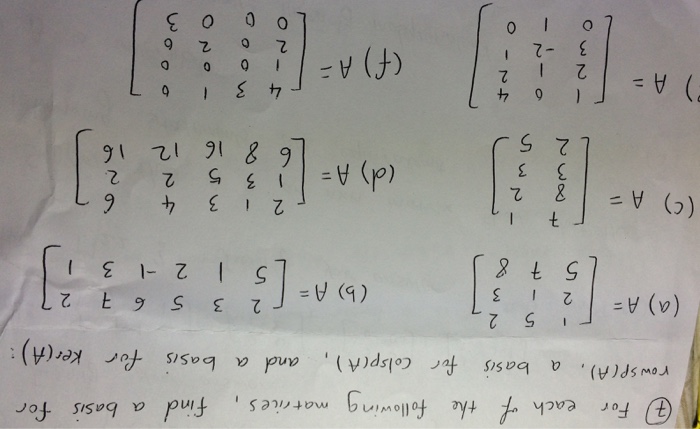 7 For each of the following matrices, find a basis for
rowsp(A), a basis for colsp(A), and a basis for ker(A):
(a) A = [ 1 5 2
2 1 3
5 7 8 ]
(b) A = [ 2 3 5 6 7 2
5 1 2 -1 3 1 ]
(c) A = [ 7 1
8 2
3 3
2 5 ]
(d) A = [ 2 1 3 4 6
1 3 5 2 2
6 8 16 12 16 ]
) A = [ 1 0 4
2 1 2
3 -2 1
0 1 0 ]
(f) A = [ 4 3 1 0
1 0 0 0
2 0 2 0
0 0 0 3 ]